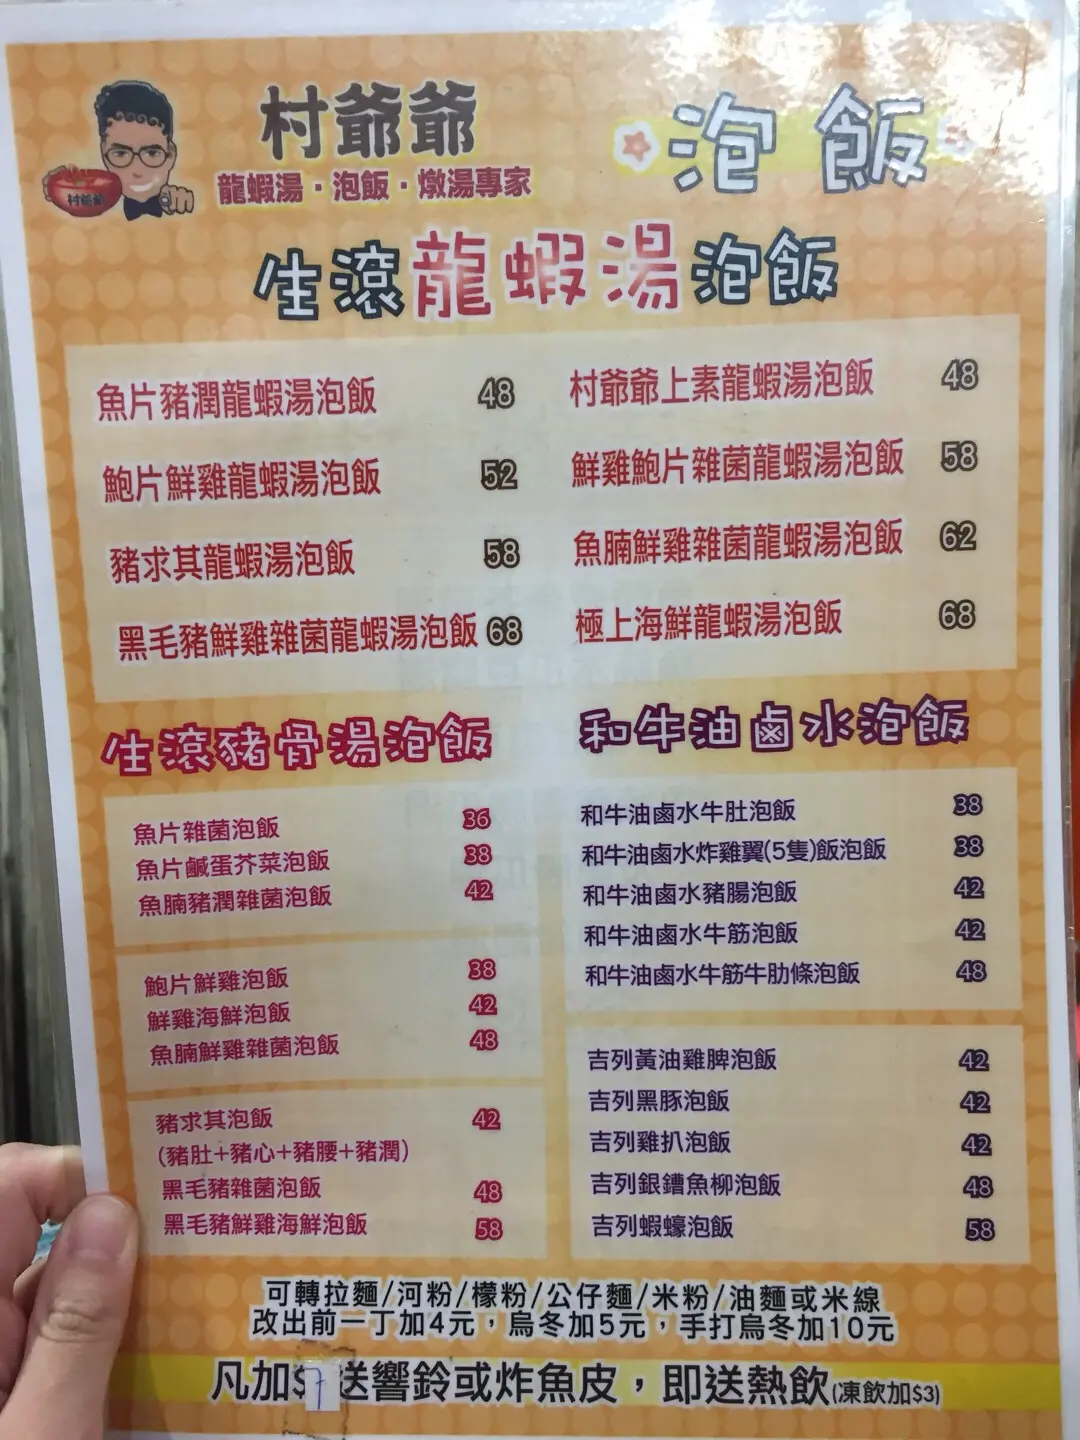 村爺爺
龍蝦湯·泡飯·燉湯專家
村爺爺
泡飯
生滾龍蝦湯泡飯
魚片豬潤龍蝦湯泡飯 48
鮑片鮮雞龍蝦湯泡飯 52
豬求其龍蝦湯泡飯 58
黑毛豬鮮雞雜菌龍蝦湯泡飯 68
村爺爺上素龍蝦湯泡飯 48
鮮雞鮑片雜菌龍蝦湯泡飯 58
魚腩鮮雞雜菌龍蝦湯泡飯 62
極上海鮮龍蝦湯泡飯 68
生滾豬骨湯泡飯
魚片雜菌泡飯 36
魚片鹹蛋芥菜泡飯 38
魚腩豬潤雜菌泡飯 42
鮑片鮮雞泡飯 38
鮮雞海鮮泡飯 42
魚腩鮮雞雜菌泡飯 48
豬求其泡飯 42
(豬肚+豬心+豬腰+豬潤)
黑毛豬雜菌泡飯 48
黑毛豬鮮雞海鮮泡飯 58
和牛油鹵水泡飯
和牛油鹵水牛肚泡飯 38
和牛油鹵水炸雞翼(5隻)飯泡飯 38
和牛油鹵水豬腸泡飯 42
和牛油鹵水牛筋泡飯 42
和牛油鹵水牛筋牛肋條泡飯 48
吉列黃油雞脾泡飯 42
吉列黑豚泡飯 42
吉列雞扒泡飯 42
吉列銀鱈魚柳泡飯 48
吉列蝦蠔泡飯 58
可轉拉麵/河粉/檬粉/公仔麵/米粉/油麵或米線
改出前一丁加4元，烏冬加5元，手打烏冬加10元
凡加$7送響鈴或炸魚皮，即送熱飲(凍飲加$3)